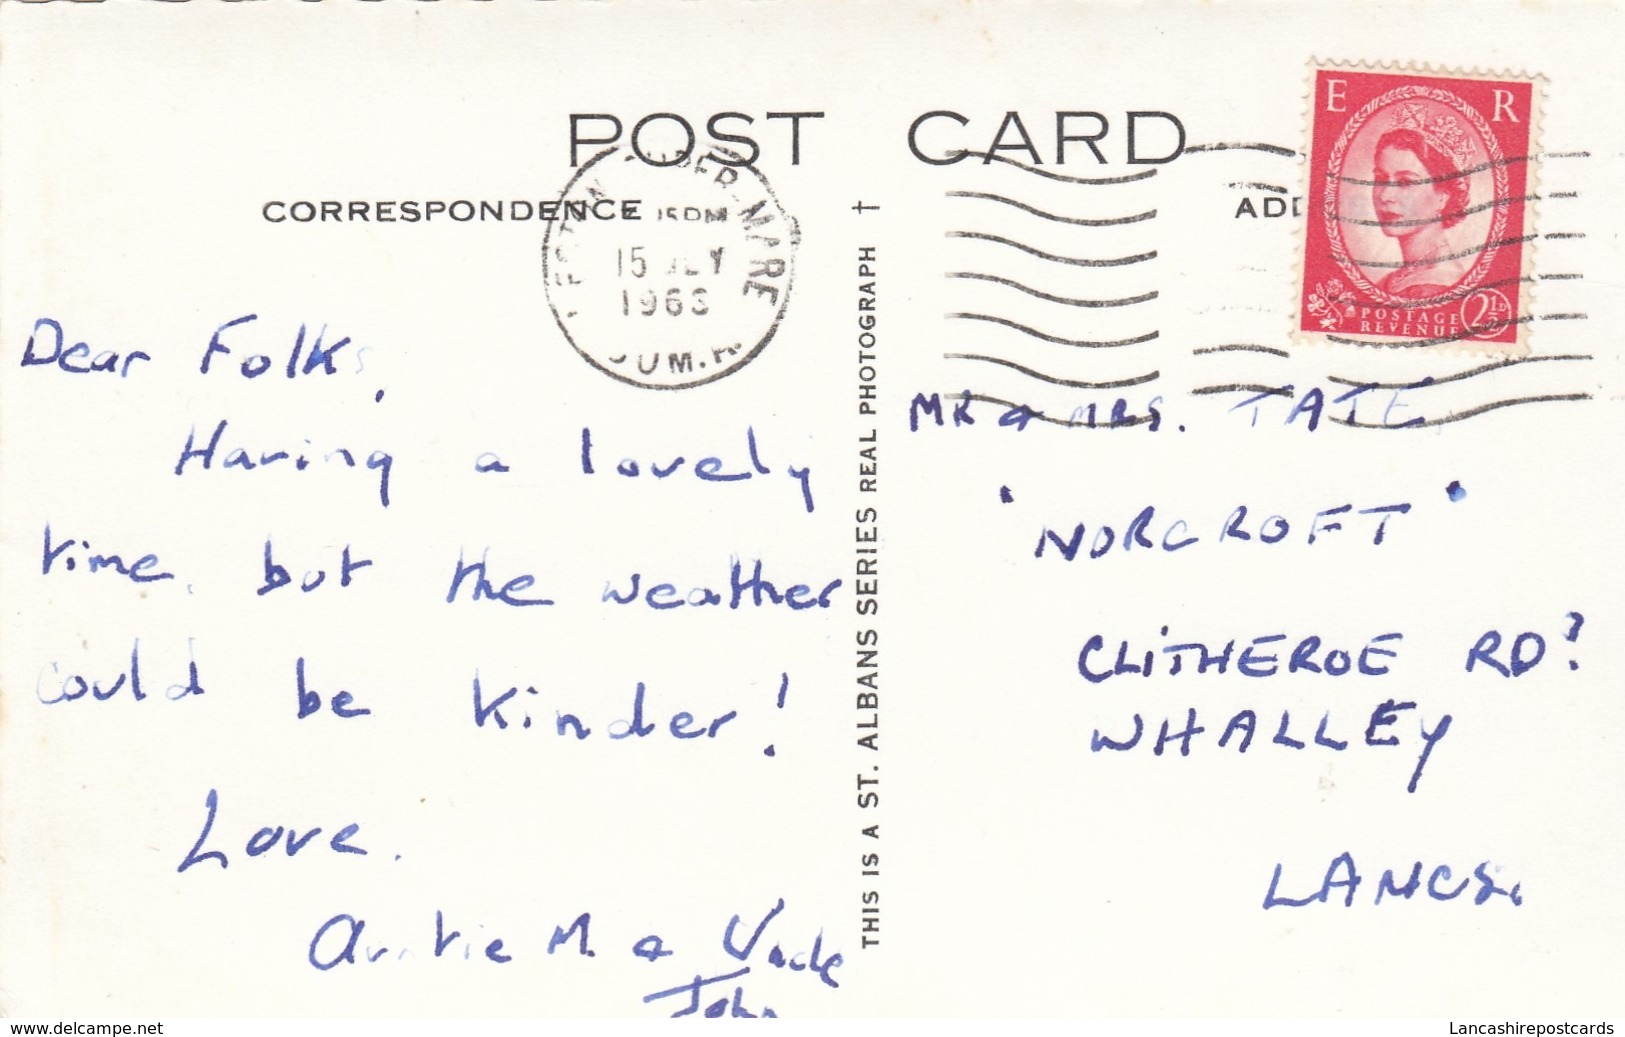 POST CARD
CORRESPONDENCE
WESTON SUPER MARE
15 PM
15 JLY
1963
SOM.
E R
POSTAGE
REVENUE
2½D
Dear Folks,
Having a lovely
time, but the weather
could be kinder!
Love.
Auntie M. & Uncle
John
THIS IS A ST. ALBANS SERIES REAL PHOTOGRAPH †
MR & MRS. TATE,
"NORCROFT"
CLITHEROE RD?
WHALLEY
LANCS.
www.delcampe.net
Lancashirepostcards